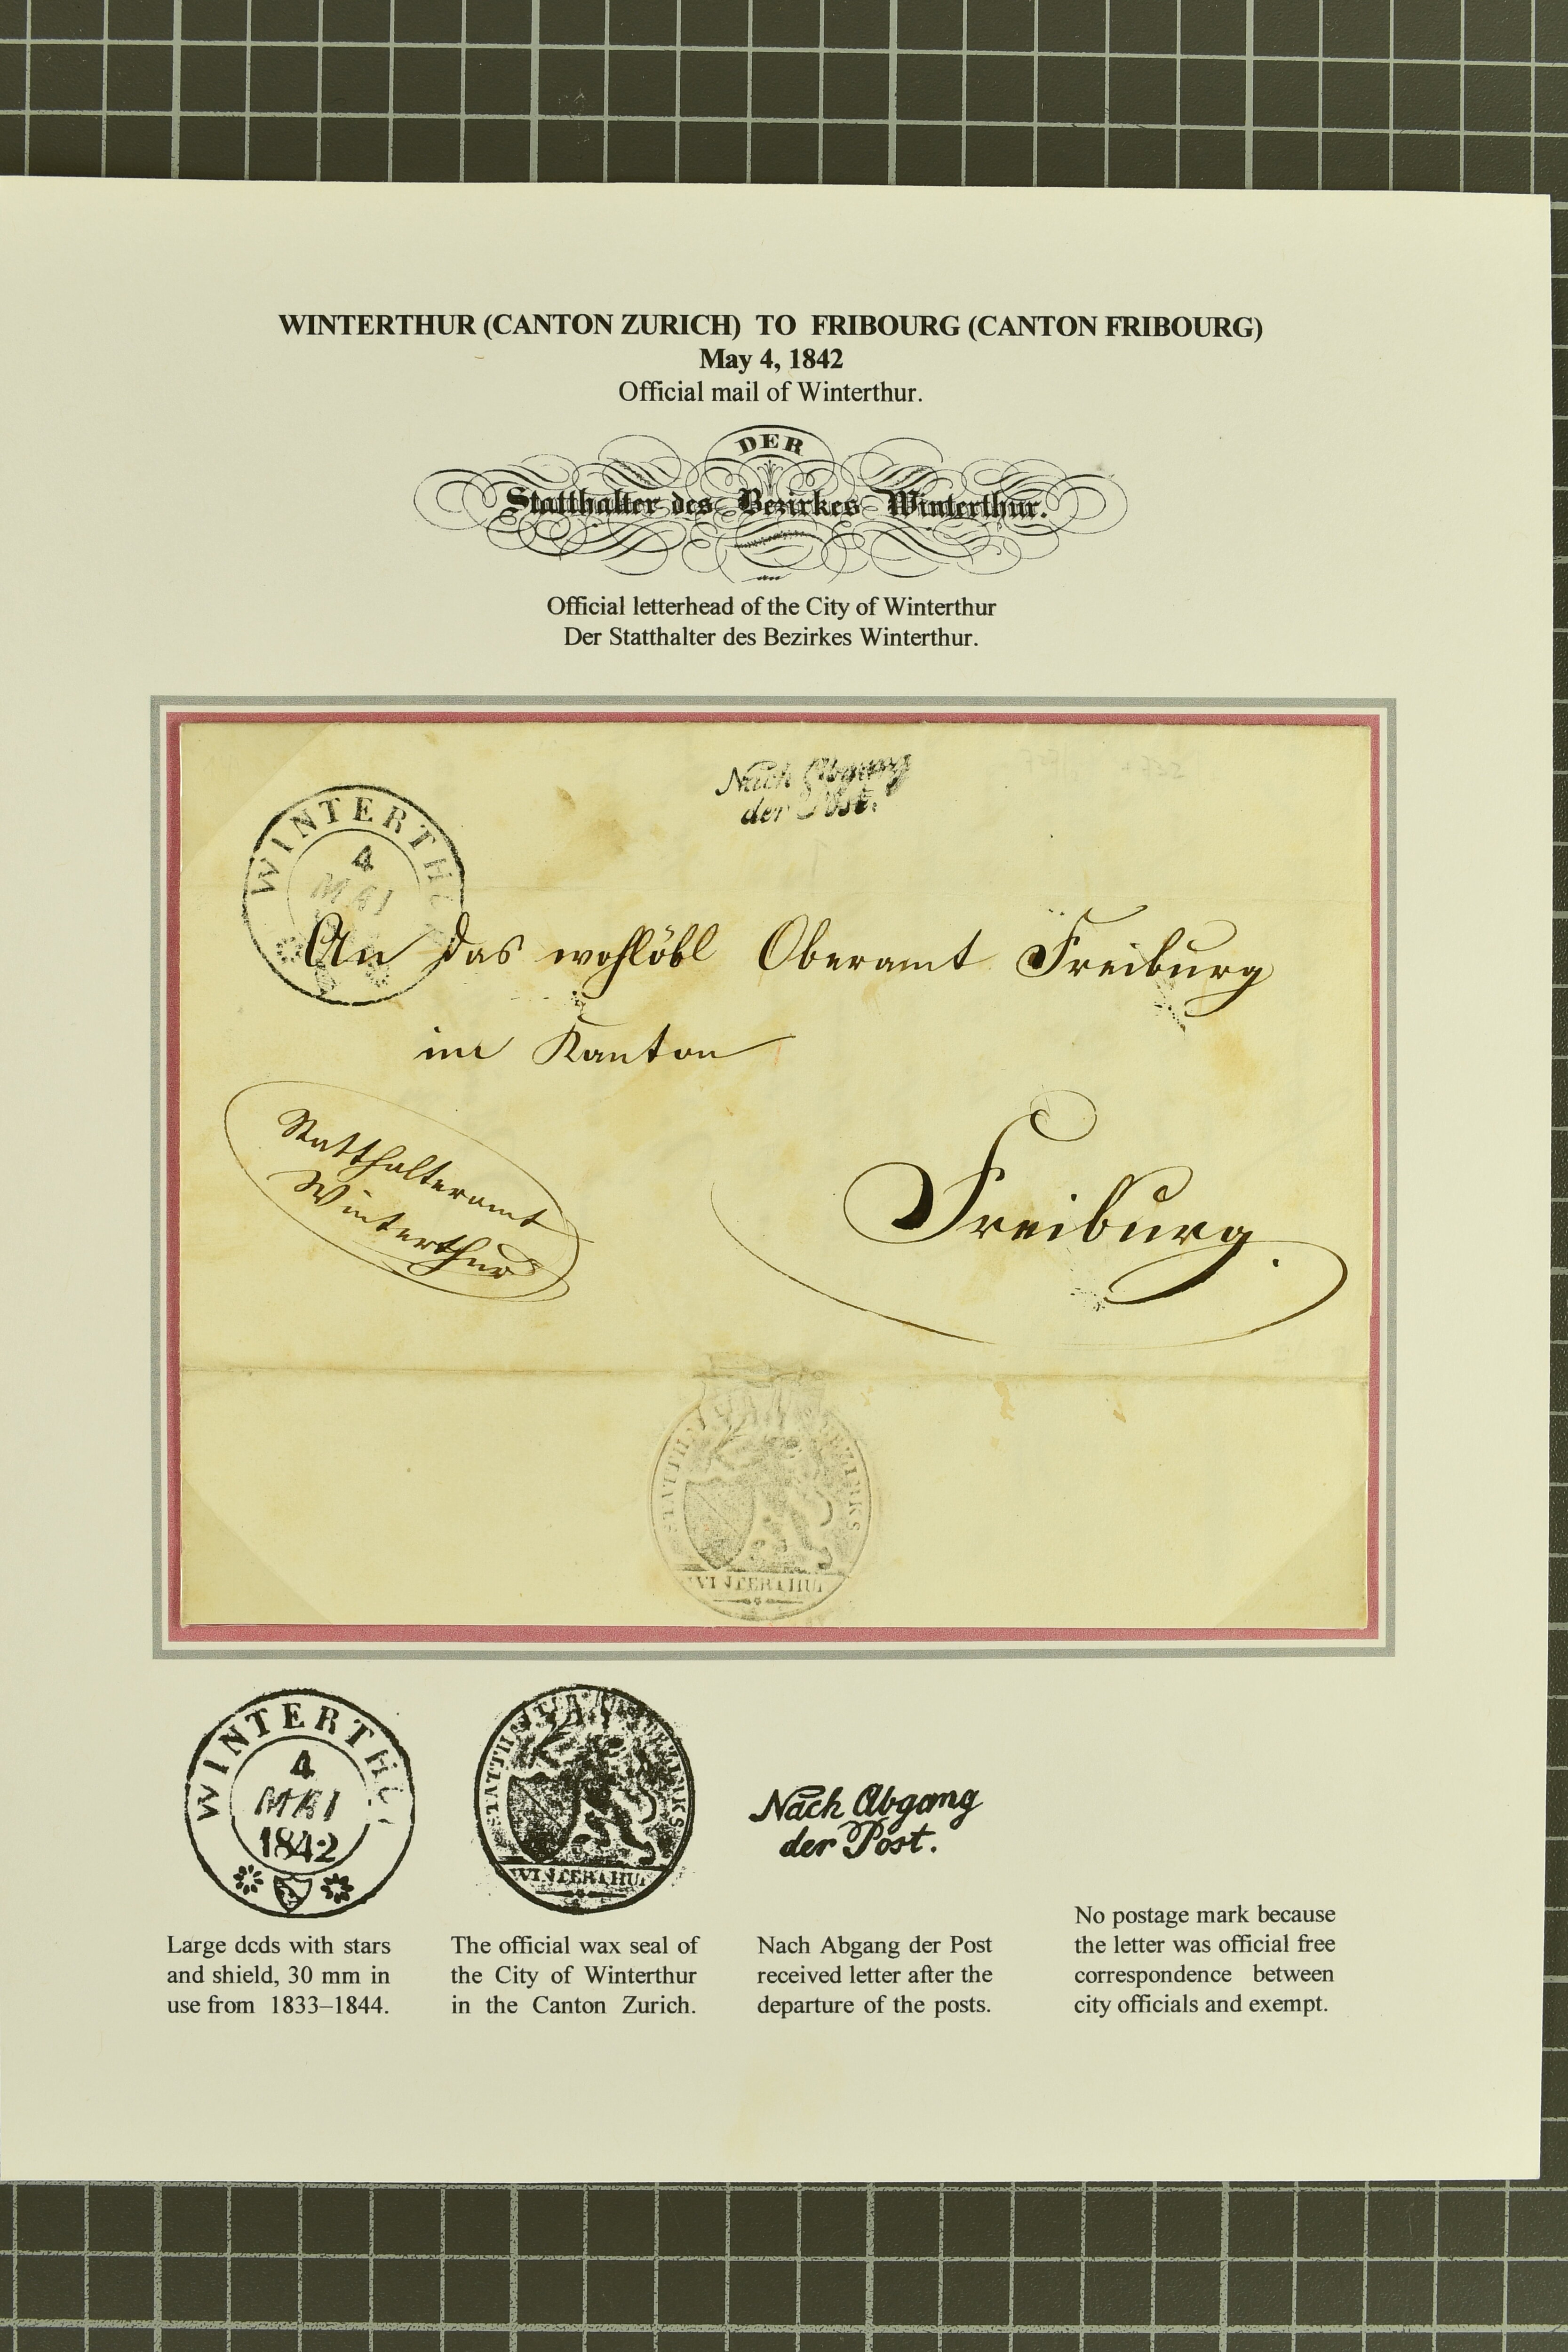 WINTERTHUR (CANTON ZURICH) TO FRIBOURG (CANTON FRIBOURG)
May 4, 1842
Official mail of Winterthur.
DER
Statthalter des Bezirkes Winterthur.
an
Official letterhead of the City of Winterthur
Der Statthalter des Bezirkes Winterthur.
Nach Abgang
der Post.
WINTERTHU
4
MAI
An das wohllöbl Oberamt Freiburg
im Kanton
Statthalteramt
Winterthur
Freiburg.
STATTH BEZIRKS
WINTERTHUR
WINTERTHU
4
MAI
1842
STATTH BEZIRKS
WINTERTHUR
Nach Abgang
der Post.
Large dcds with stars
and shield, 30 mm in
use from 1833–1844.
The official wax seal of
the City of Winterthur
in the Canton Zurich.
Nach Abgang der Post
received letter after the
departure of the posts.
No postage mark because
the letter was official free
correspondence between
city officials and exempt.